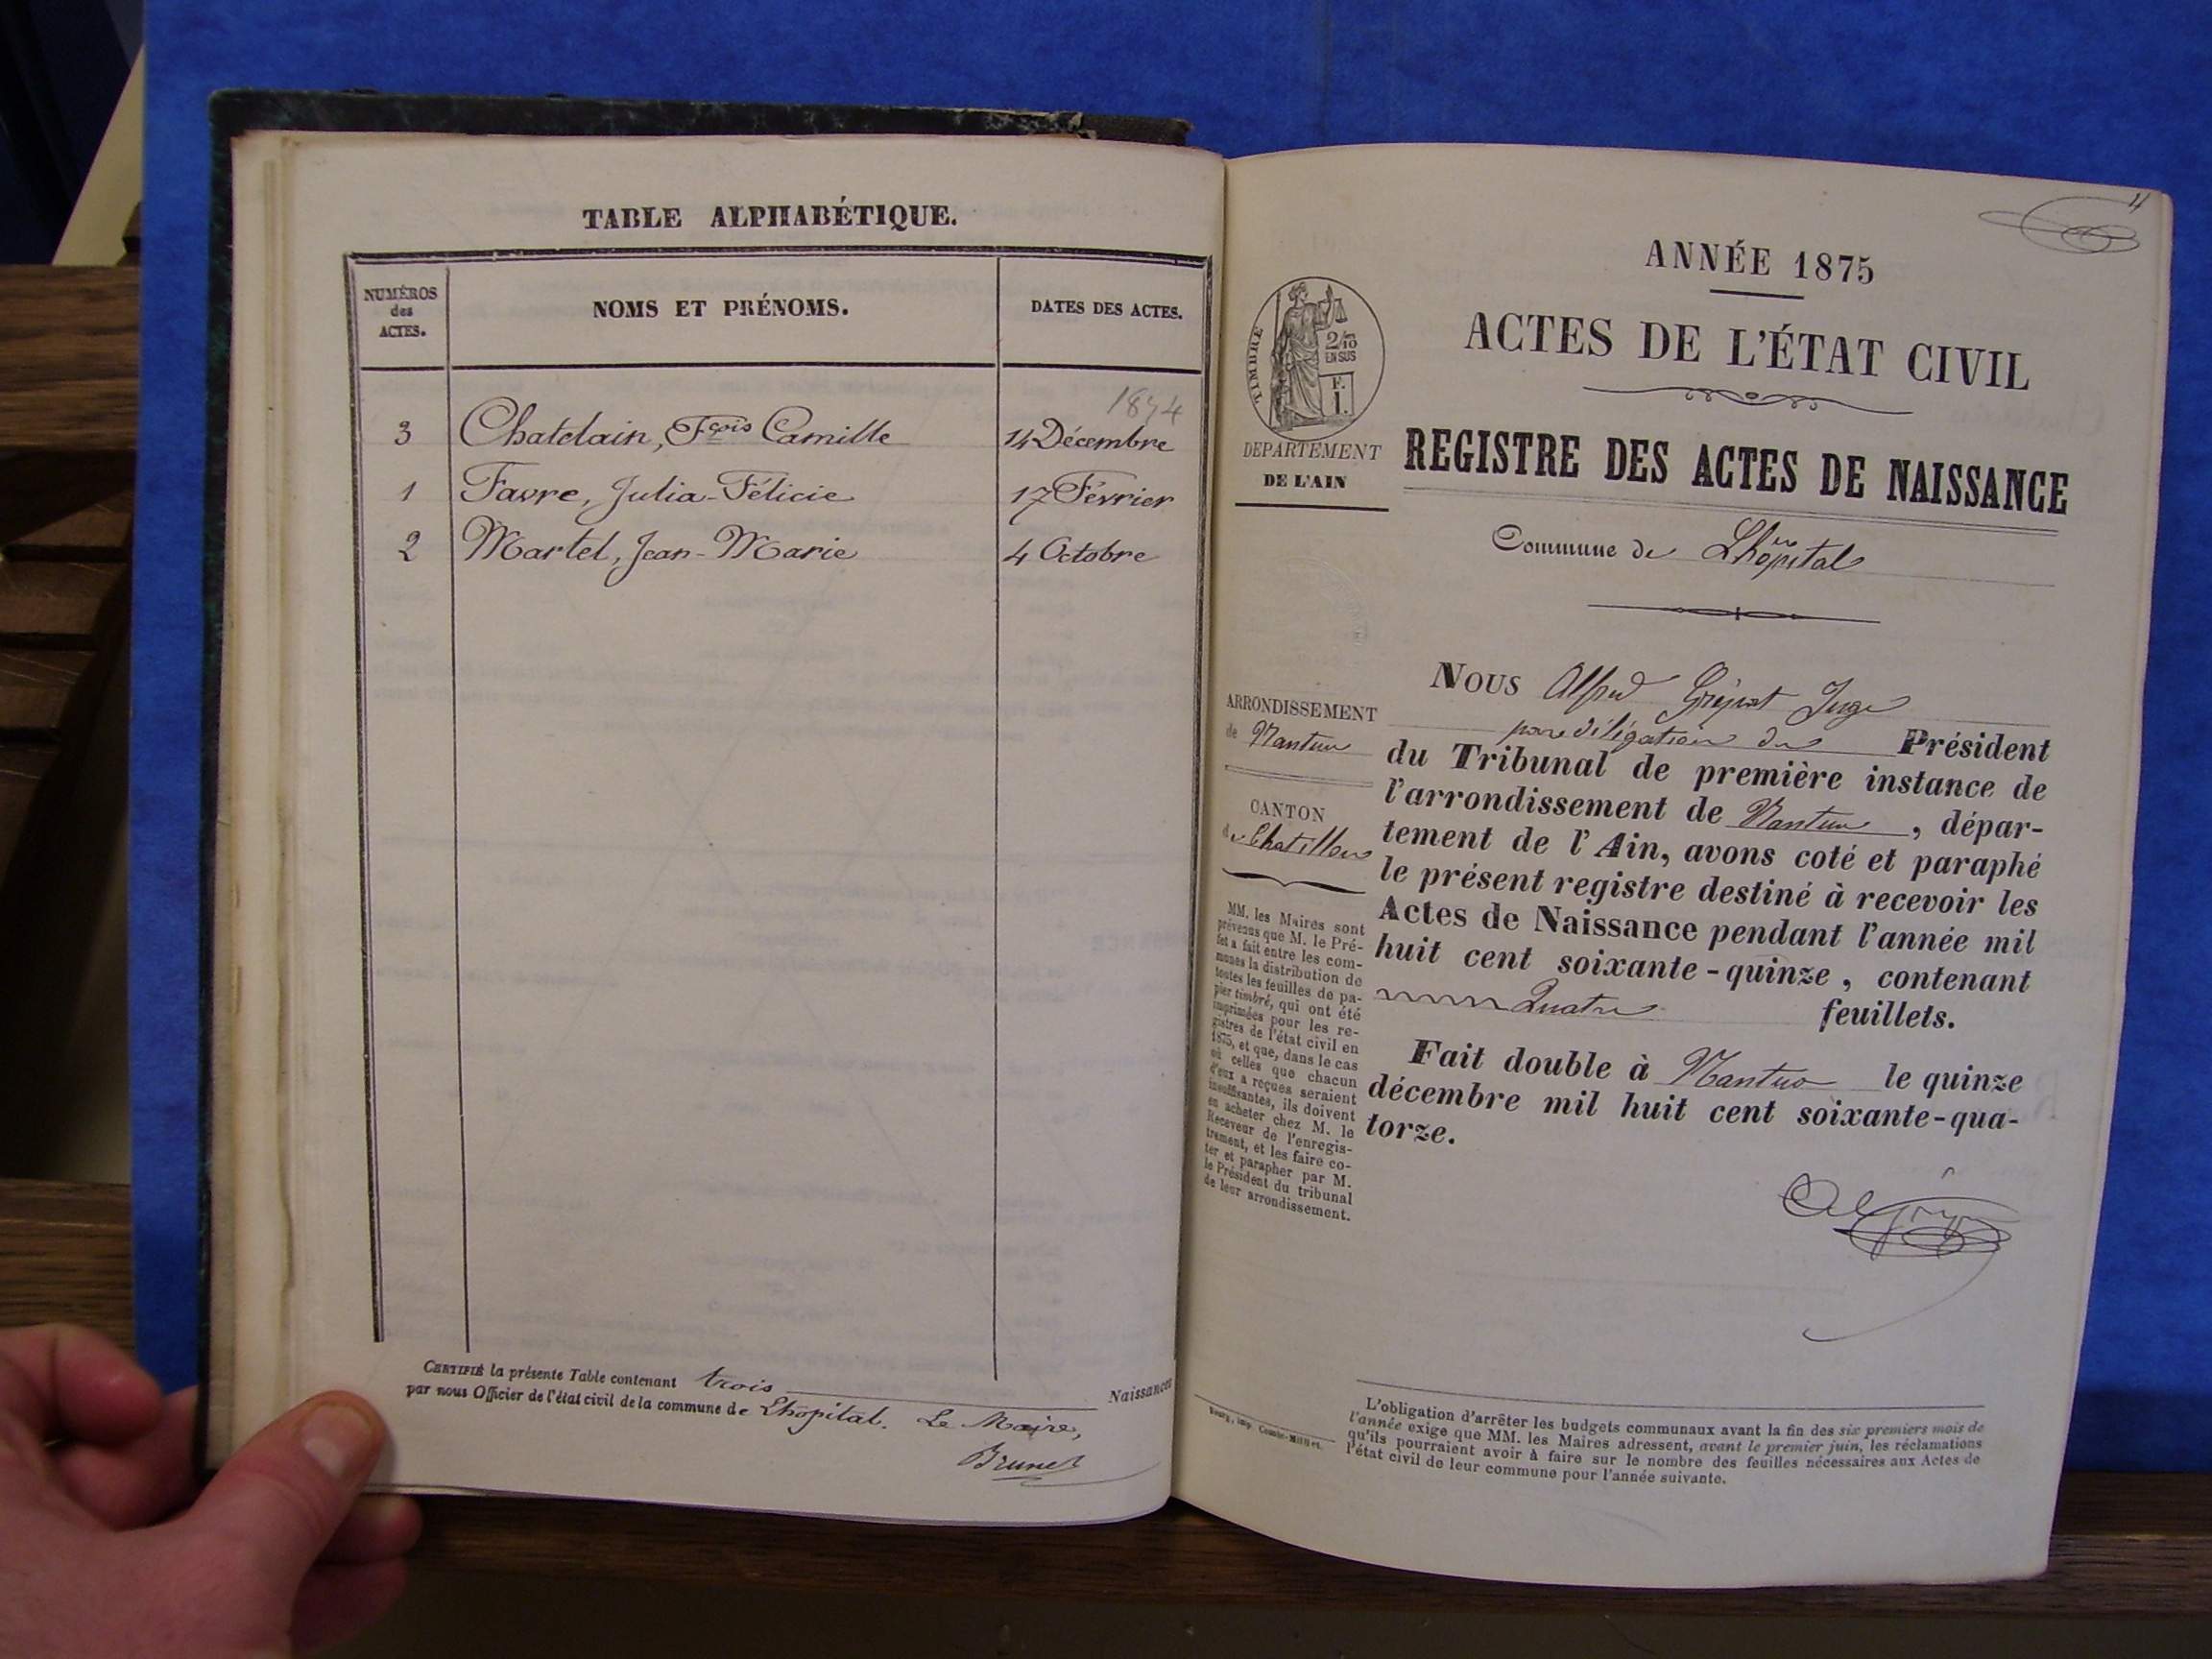 TABLE ALPHABÉTIQUE.
NUMÉROS
des
ACTES.
NOMS ET PRÉNOMS.
DATES DES ACTES.
1874
3 Chatelain, Fçois Camille 14 Décembre
1 Favre, Julia-Félicie 17 Février
2 Martel, Jean-Marie 4 Octobre
CERTIFIÉ la présente Table contenant trois Naissances
par nous Officier de l'état civil de la commune de Lhopital. Le Maire,
Brunet
ANNÉE 1875
ACTES DE L'ÉTAT CIVIL
TIMBRE
2/10
EN SUS
F.
1.
DEPARTEMENT
DE L'AIN
REGISTRE DES ACTES DE NAISSANCE
Commune de Lhôpital
ARRONDISSEMENT
de Nantua
CANTON
de Chatillon
MM. les Maires sont
prévenus que M. le Pré-
fet a fait entre les com-
munes la distribution de
toutes les feuilles de pa-
pier timbré, qui ont été
imprimées pour les re-
gistres de l'état civil en
1875, et que, dans le cas
où celles que chacun
d'eux a reçues seraient
insuffisantes, ils doivent
en acheter chez M. le
Receveur de l'enregis-
trement, et les faire co-
ter et parapher par M.
le Président du tribunal
de leur arrondissement.
NOUS Alfred Juge
par délégation du Président
du Tribunal de première instance de
l'arrondissement de Nantua, dépar-
tement de l'Ain, avons coté et paraphé
le présent registre destiné à recevoir les
Actes de Naissance pendant l'année mil
huit cent soixante-quinze, contenant
Quatre feuillets.
Fait double à Nantua le quinze
décembre mil huit cent soixante-qua-
torze.
Bourg, imp. Comte-Milliet.
L'obligation d'arrêter les budgets communaux avant la fin des six premiers mois de
l'année exige que MM. les Maires adressent, avant le premier juin, les réclamations
qu'ils pourraient avoir à faire sur le nombre des feuilles nécessaires aux Actes de
l'état civil de leur commune pour l'année suivante.